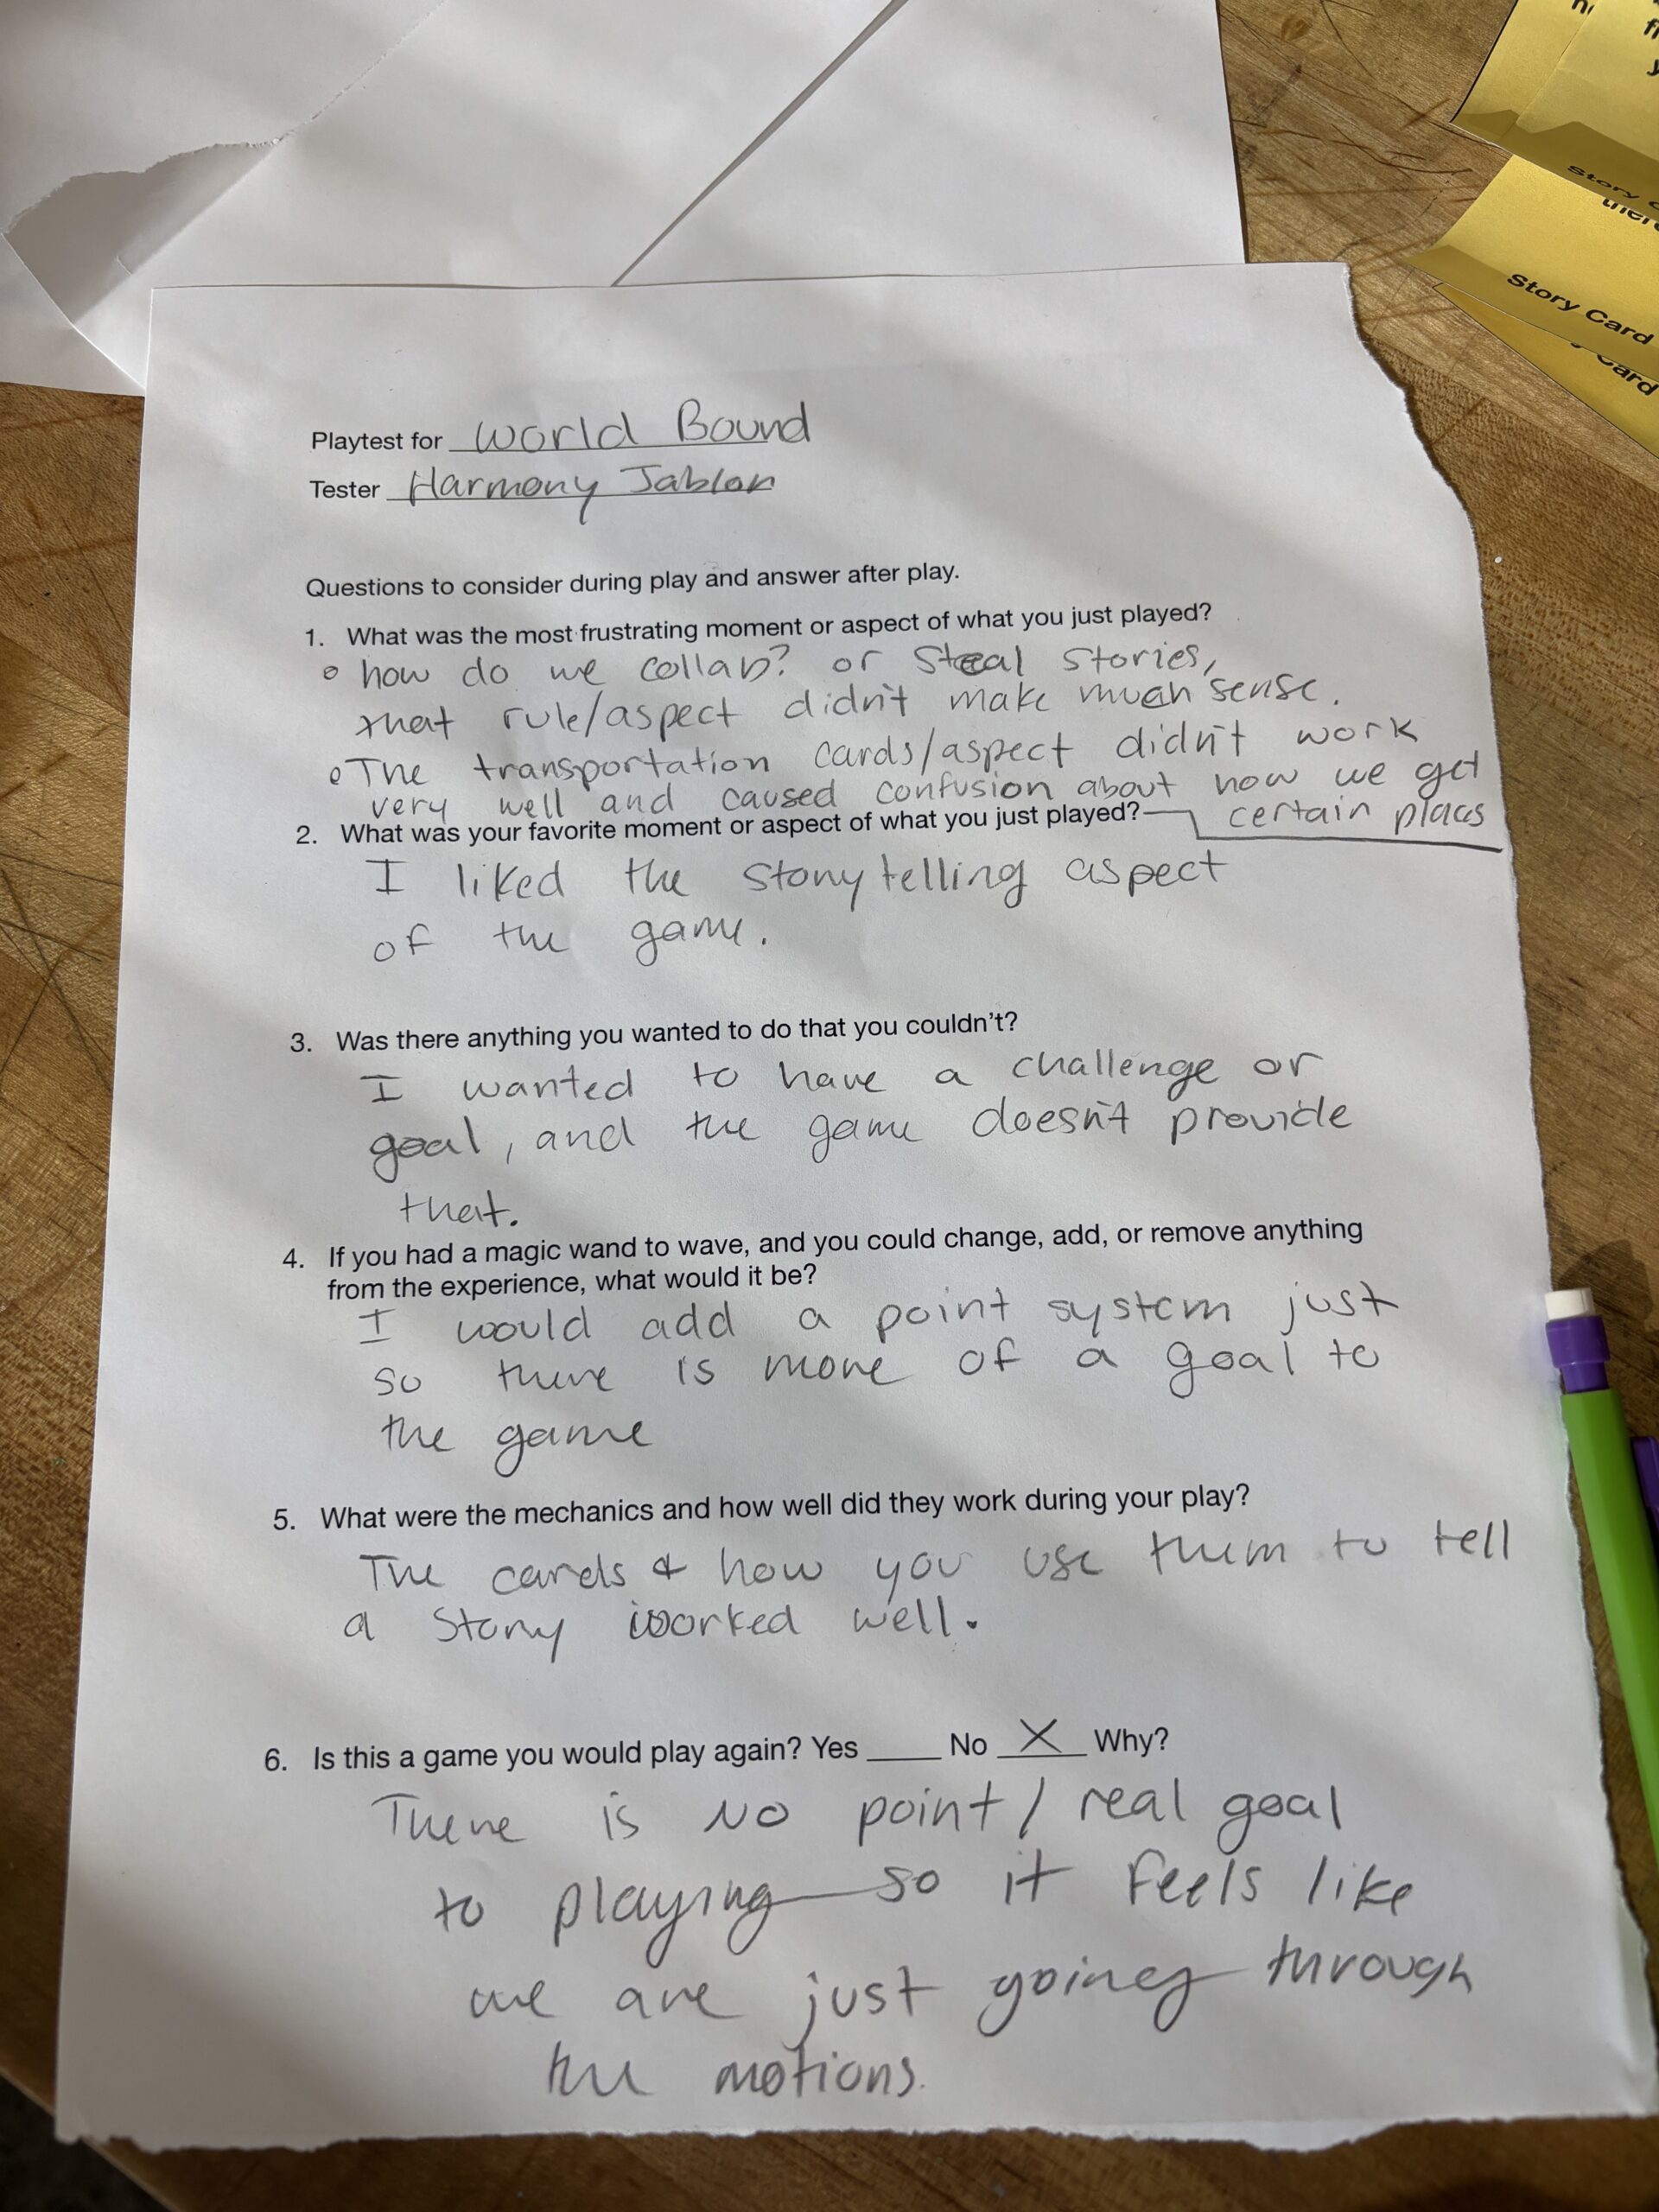 Story Card
Card
Playtest for World Bound
Tester Harmony Jablon
Questions to consider during play and answer after play.
1. What was the most frustrating moment or aspect of what you just played?
o how do we collab? or Steal stories,
that rule/aspect didn't make much sense.
o The transportation cards/aspect didn't work
very well and caused confusion about how we get
certain places
2. What was your favorite moment or aspect of what you just played?
I liked the storytelling aspect
of the game.
3. Was there anything you wanted to do that you couldn't?
I wanted to have a challenge or
goal, and the game doesn't provide
that.
4. If you had a magic wand to wave, and you could change, add, or remove anything
from the experience, what would it be?
I would add a point system just
so there is more of a goal to
the game
5. What were the mechanics and how well did they work during your play?
The cards & how you use them to tell
a story worked well.
6. Is this a game you would play again? Yes ____ No X Why?
There is no point / real goal
to playing so it feels like
we are just going through
the motions.